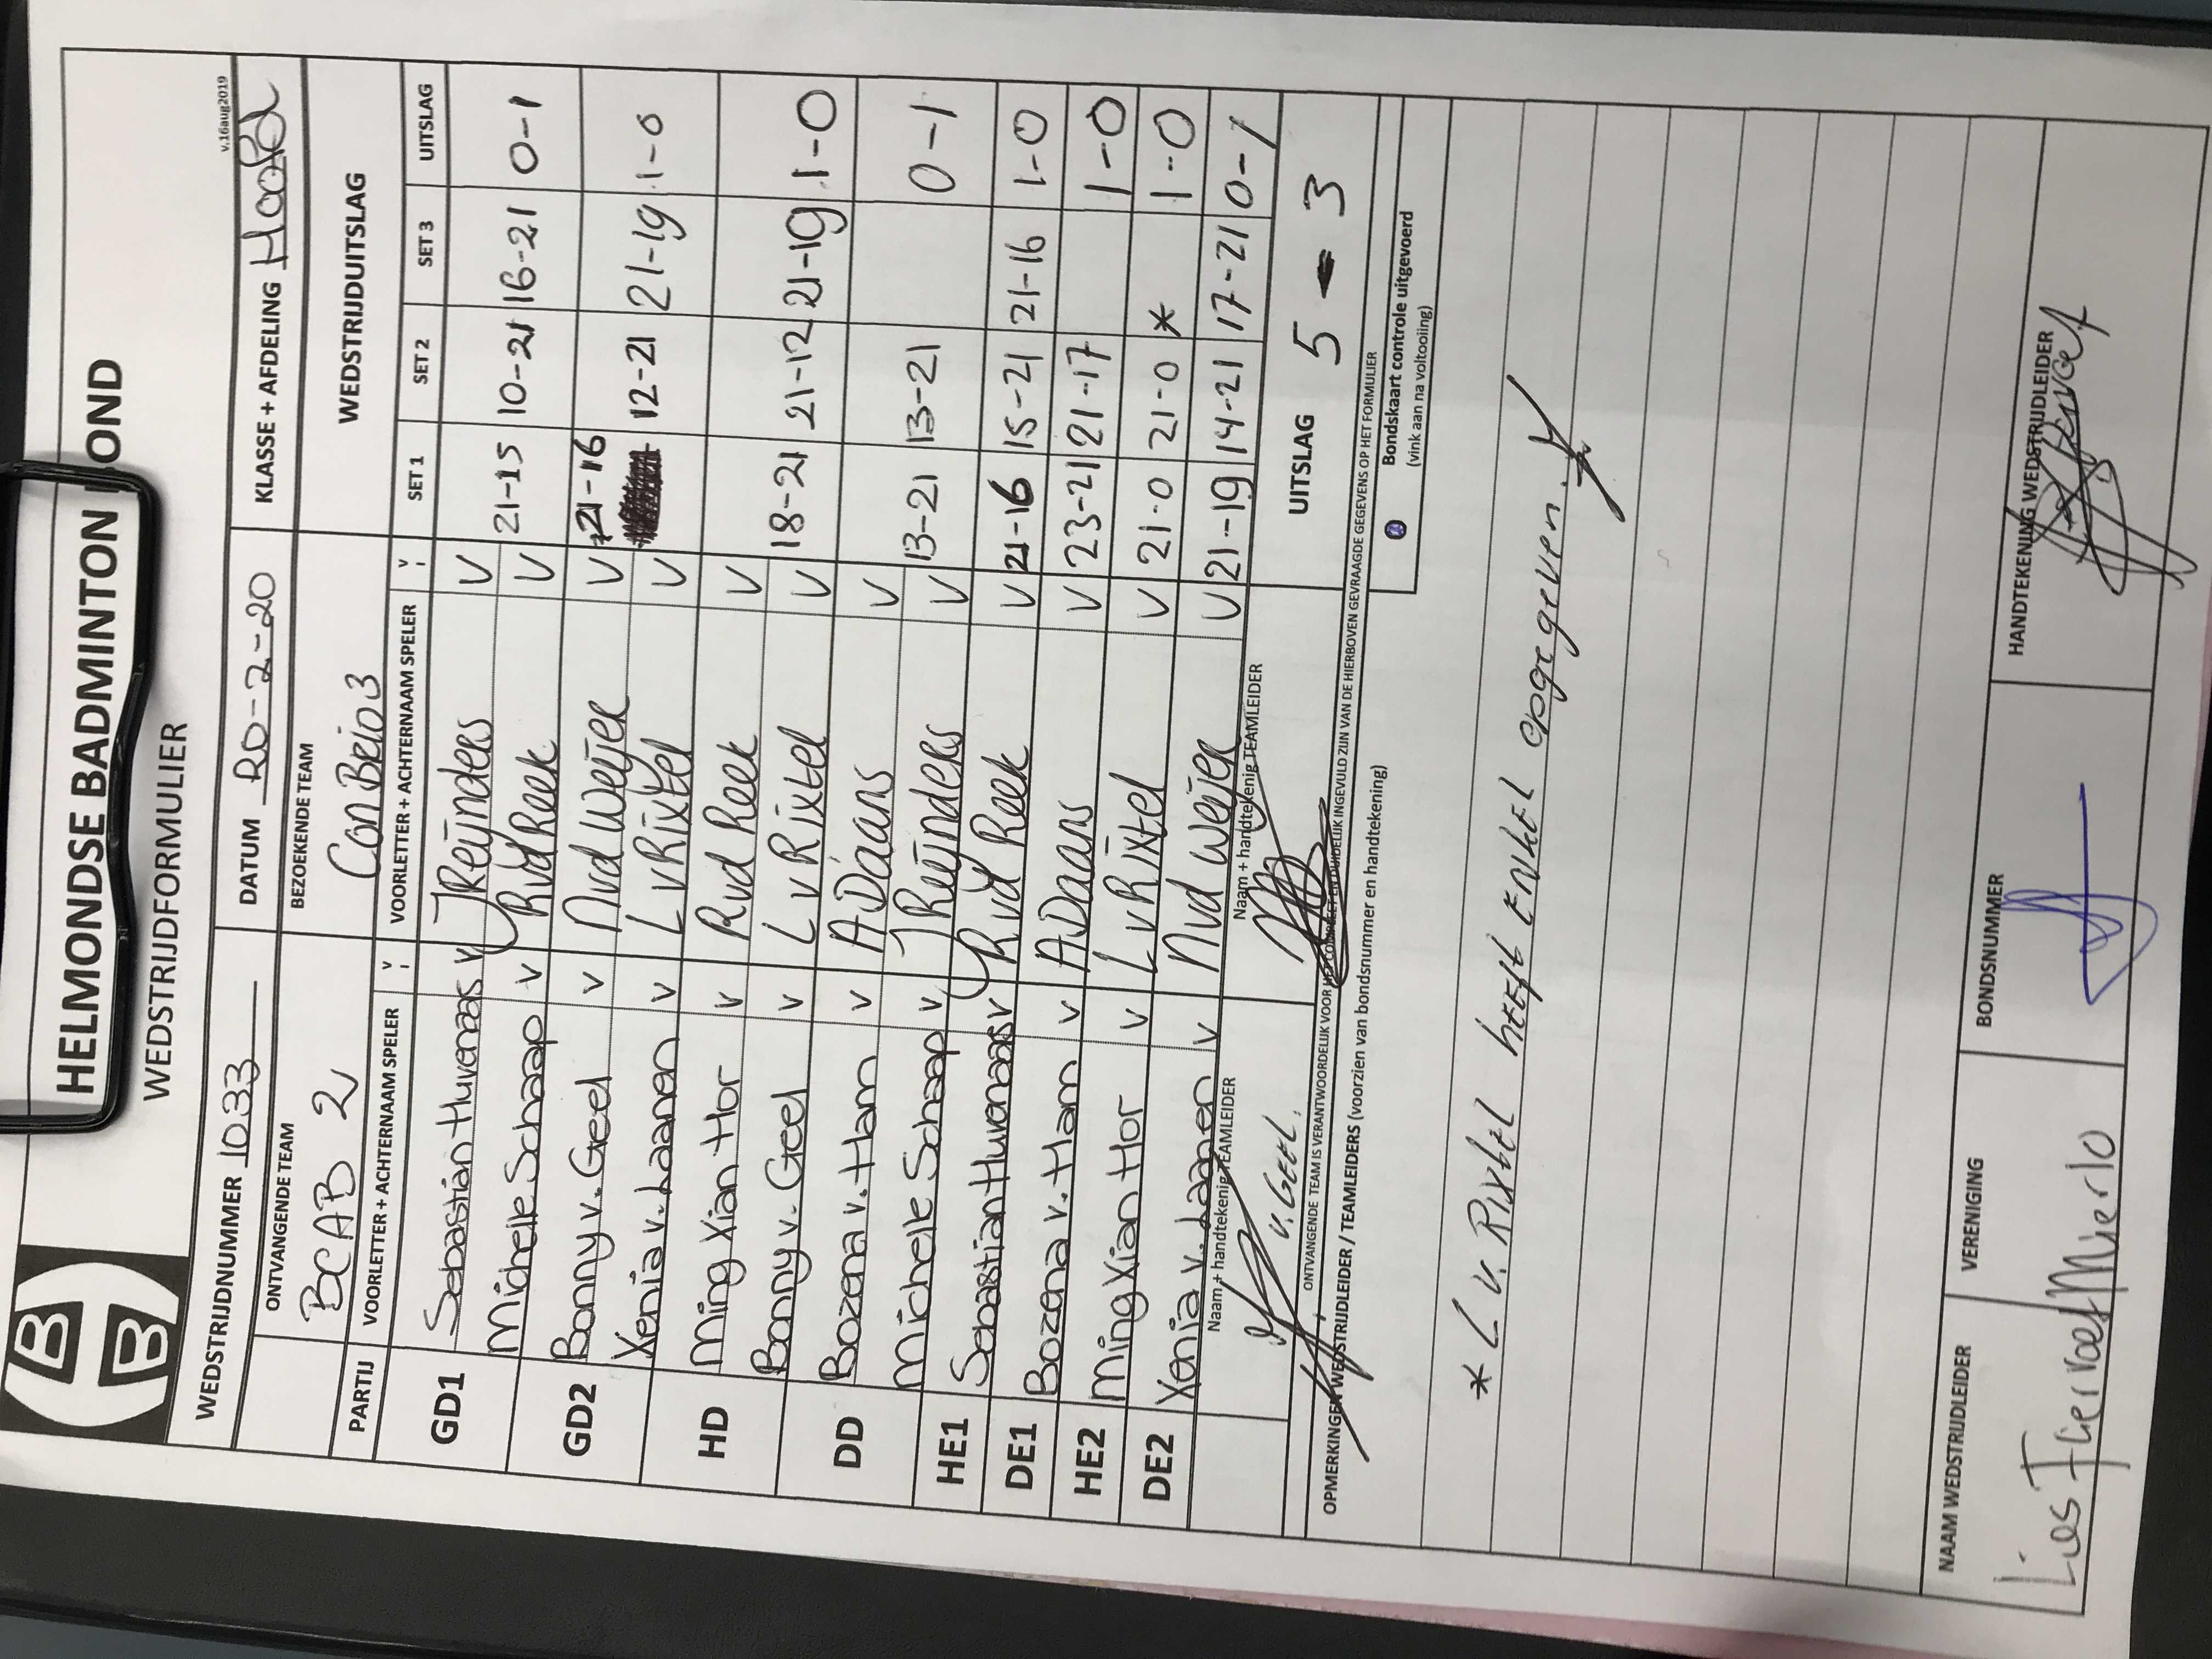 HELMONDSE BADMINTON OND
WEDSTRIJDFORMULIER
v.16aug2019
WEDSTRIJDNUMMER 1033 DATUM 20-2-20 KLASSE + AFDELING Hoofd
ONTVANGENDE TEAM BEZOEKENDE TEAM WEDSTRIJDUITSLAG
BCAB 2 Con Brio 3
PARTIJ VOORLETTER + ACHTERNAAM SPELER V VOORLETTER + ACHTERNAAM SPELER V SET 1 SET 2 SET 3 UITSLAG
GD1 Sebastian Huvenaars V J Reijnders V
Michelle Schaap V R vd Reek V 21-15 10-21 16-21 0-1
GD2 Bonny v. Geel V N vd Weijer V 21-16
Xenia v. Laanen V L v Rixtel V 12-21 21-19 1-0
HD Ming Xian Hor V R vd Reek V
Bonny v. Geel V L v Rixtel V 18-21 21-12 21-19 1-0
DD Bozena v. Ham V A Daans V
Michelle Schaap V J Reijnders V 13-21 13-21 0-1
HE1 Sebastian Huvenaars V R vd Reek V 21-16 15-21 21-16 1-0
DE1 Bozena v. Ham V A Daans V 23-21 21-17 1-0
HE2 Ming Xian Hor V L v Rixtel V 21-0 21-0 * 1-0
DE2 Xenia v. Laanen V N vd Weijer V 21-19 14-21 17-21 0-1
Naam + handtekenig TEAMLEIDER Naam + handtekenig TEAMLEIDER UITSLAG 5 - 3
v. Geel.
ONTVANGENDE TEAM IS VERANTWOORDELIJK VOOR HET COMPLEET EN DUIDELIJK INGEVULD ZIJN VAN DE HIERBOVEN GEVRAAGDE GEGEVENS OP HET FORMULIER
OPMERKINGEN WEDSTRIJDLEIDER / TEAMLEIDERS (voorzien van bondsnummer en handtekening)
Bondskaart controle uitgevoerd
(vink aan na voltooiing)
* L v. Rixtel heeft enkel opgegeven.
NAAM WEDSTRIJDLEIDER VERENIGING BONDSNUMMER HANDTEKENING WEDSTRIJDLEIDER
Lies Fiervoet Mierlo